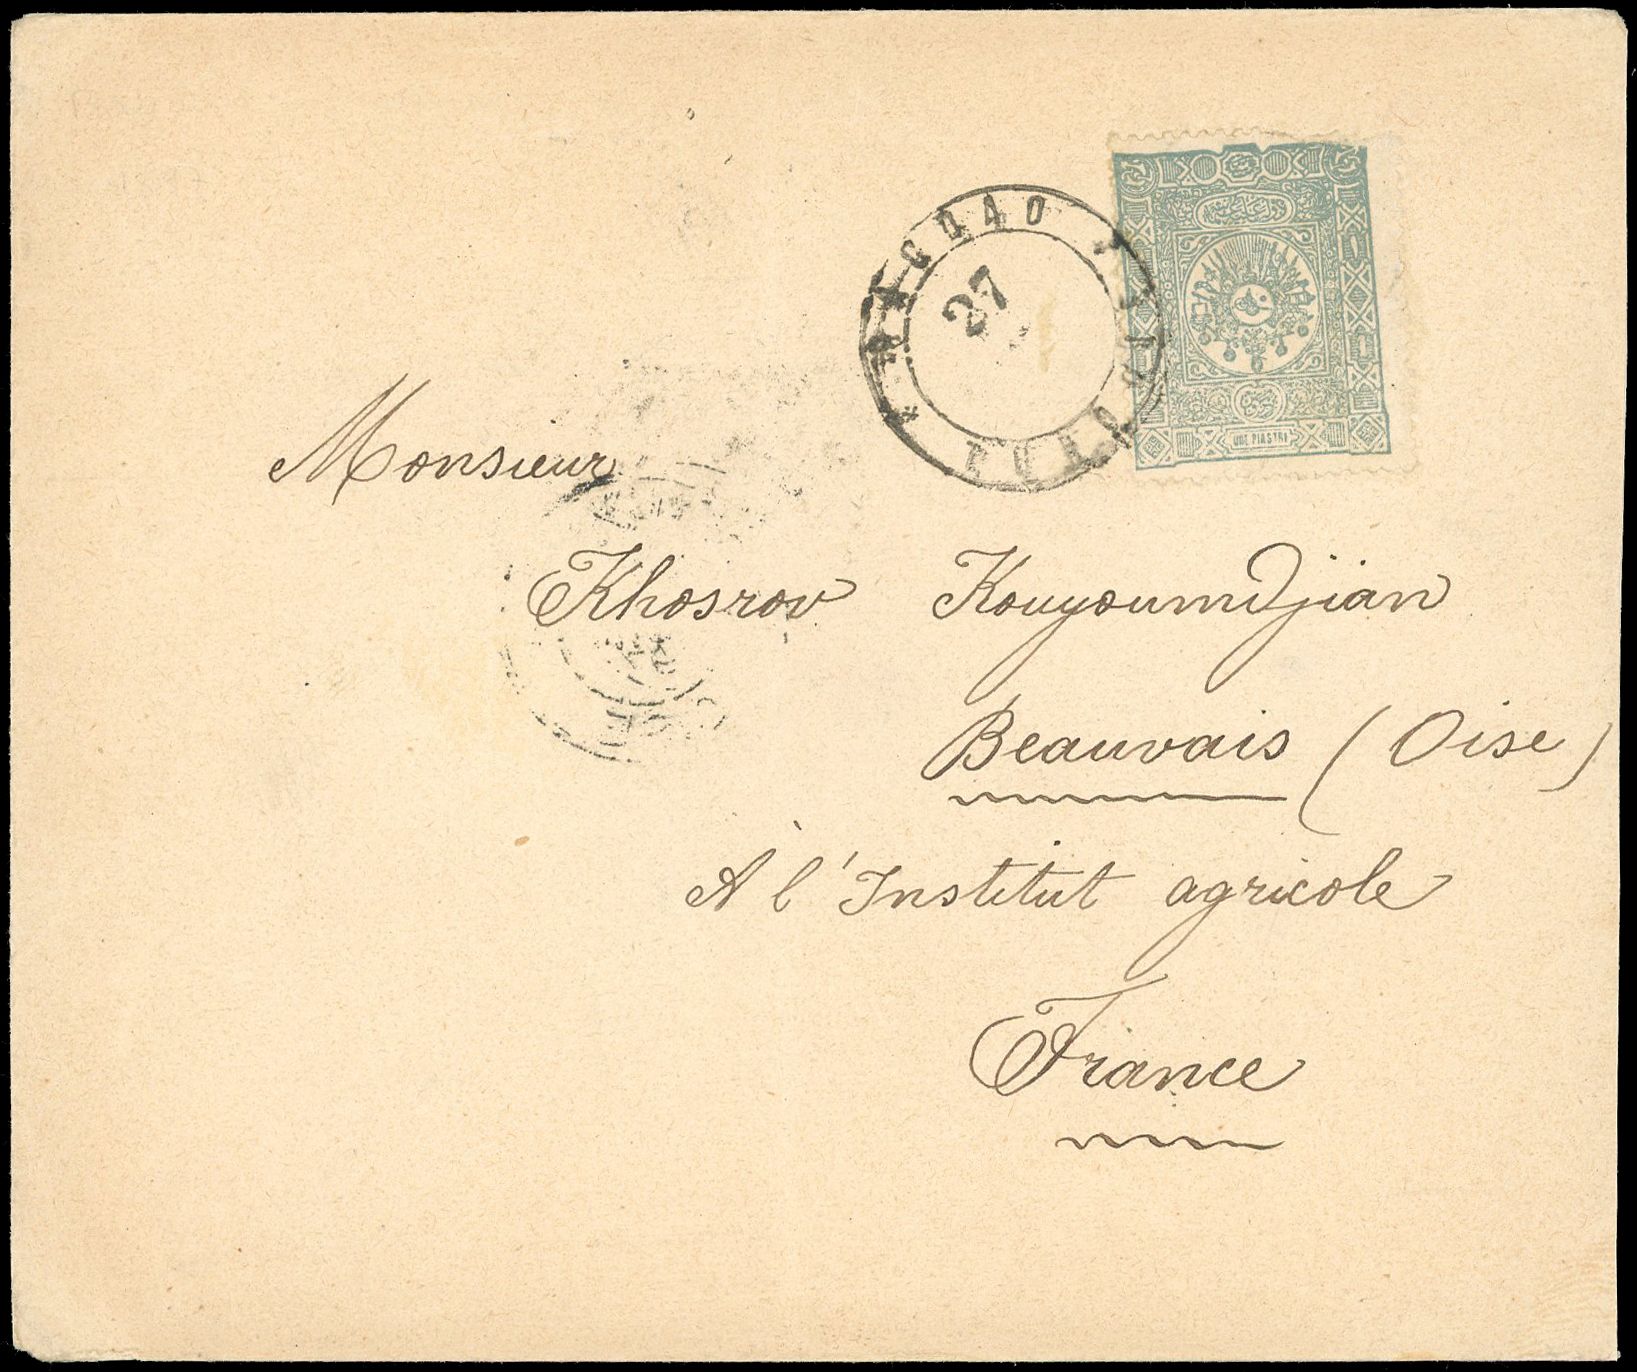 27
UNE PIASTRE
Monsieur
Khosrov Kouyoumdjian
Beauvais (Oise)
À l'Institut agricole
France